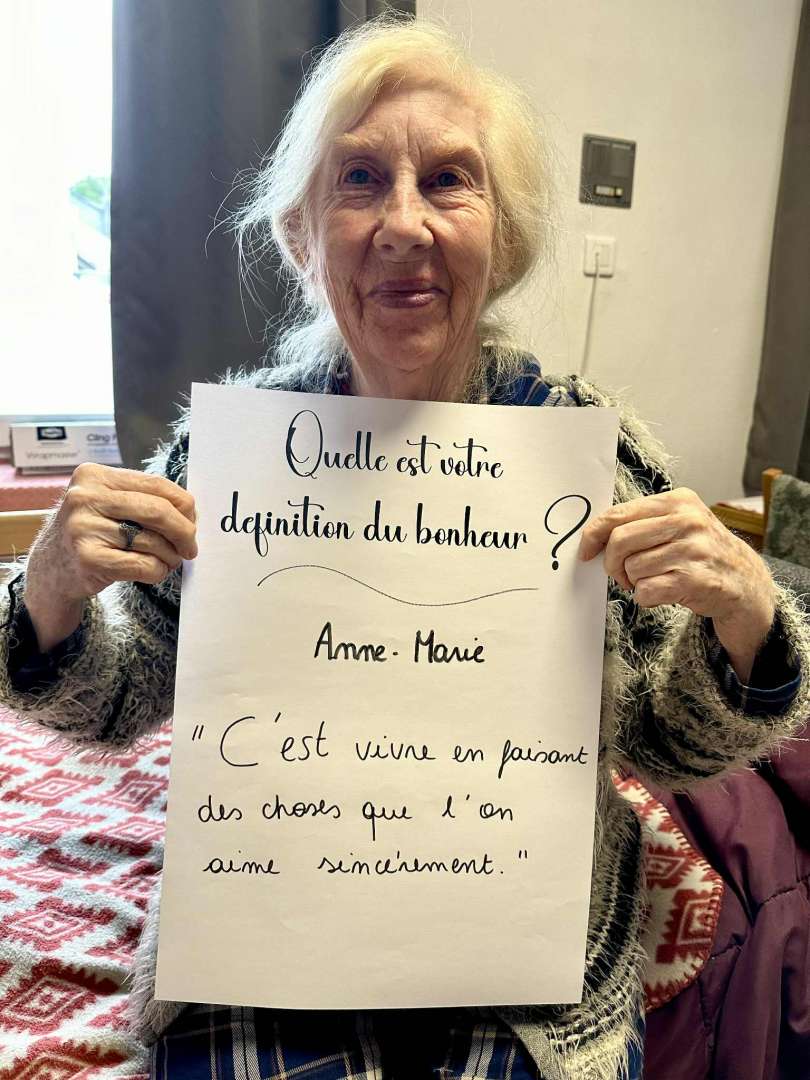 Quelle est votre
definition du bonheur ?
Anne-Marie
"C'est vivre en faisant
des choses que l'on
aime sincérement."
Wrapmaster
Cling F